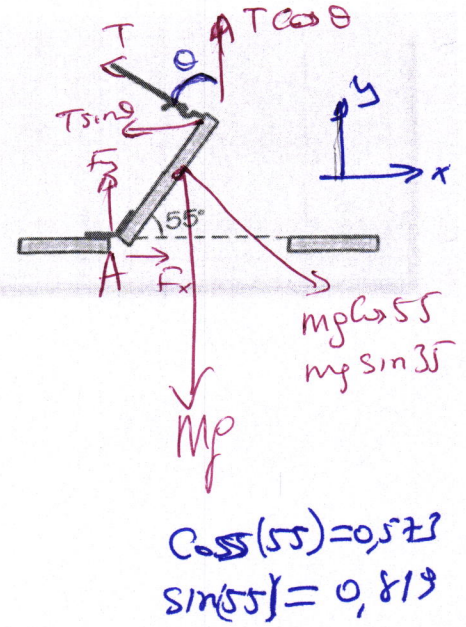 T
T Cos θ
θ
T sinθ
y
x
Fy
55°
A
Fx
mg Cos 55
mg sin 35
Mg
Coss(55)=0,573
sin(55)= 0,819